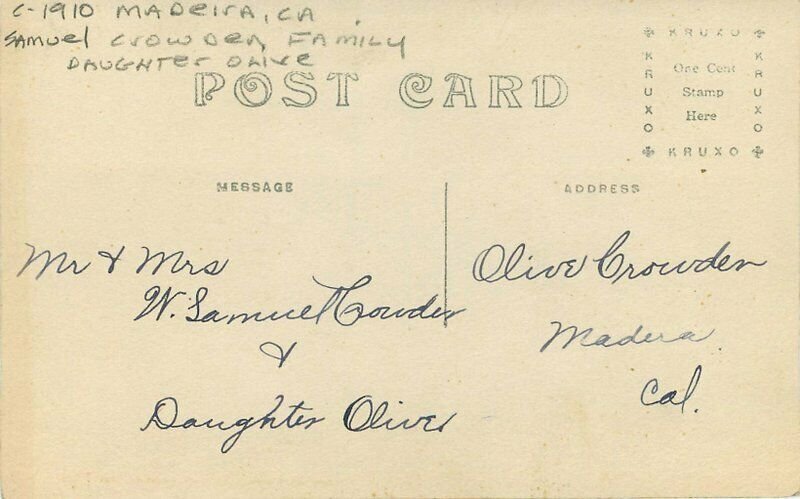 C-1910 MADEIRA, CA
SAMUEL CROWDER, FAMILY
DAUGHTER OLIVE
POST CARD
KRUXO
KRUXO
One Cent
Stamp
Here
KRUXO
KRUXO
MESSAGE
ADDRESS
Mr & Mrs
W. Samuel Crowder
&
Daughter Olive
Olive Crowder
Madera
Cal.